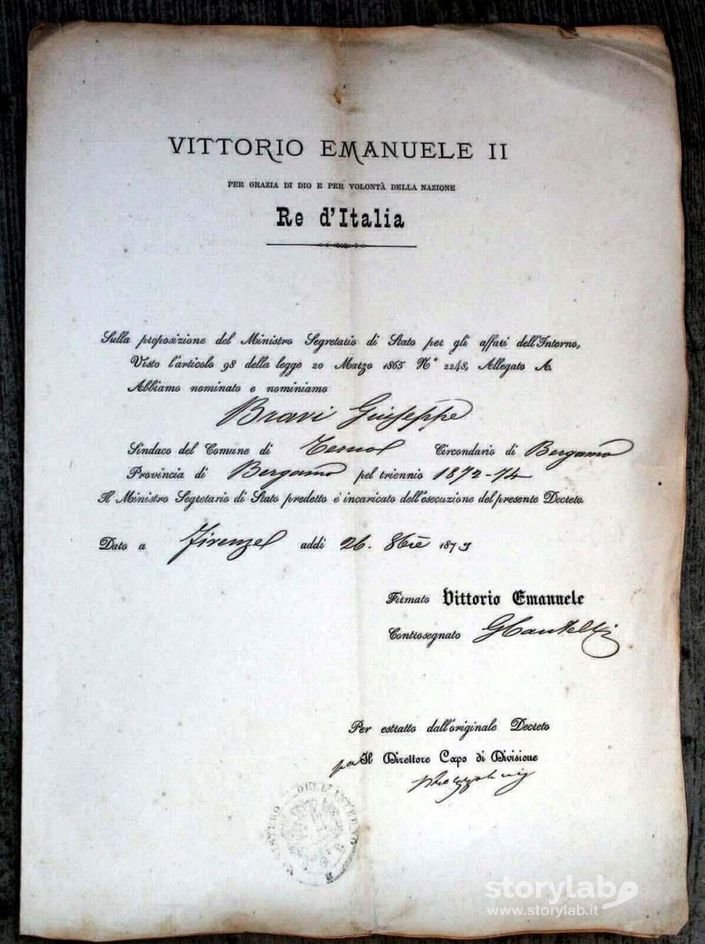 VITTORIO EMANUELE II
PER GRAZIA DI DIO E PER VOLONTÀ DELLA NAZIONE
Re d'Italia
Sulla proposizione del Ministro Segretario di Stato per gli affari dell'Interno,
Visto l'articolo 98 della legge 20 Marzo 1865 N.° 2248, Allegato A.
Abbiamo nominato e nominiamo
Bravi Giuseppe
Sindaco del Comune di Circondario di Bergamo
Provincia di Bergamo pel triennio 1872-74
Il Ministro Segretario di Stato predetto è incaricato dell'esecuzione del presente Decreto
Dato a Firenze addì 26. 8bre 1873
Firmato Vittorio Emanuele
Controsegnato GCantelli
Per estratto dall'originale Decreto
pel Il Direttore Capo di Divisione
MINISTERO DELL'INTERNO
storylab
www.storylab.it